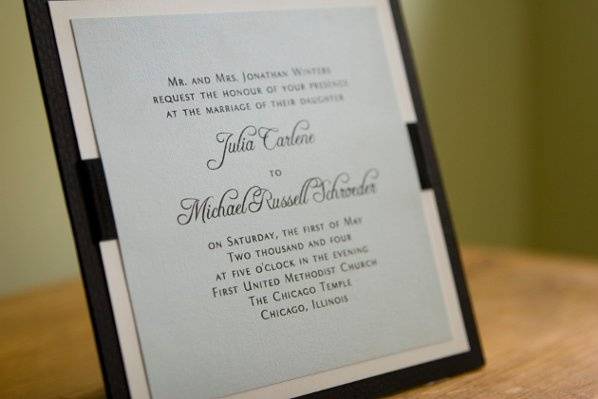 Mr. and Mrs. Jonathan Winters
request the honour of your presence
at the marriage of their daughter
Julia Carlene
to
Michael Russell Schroeder
on Saturday, the first of May
Two thousand and four
at five o'clock in the evening
First United Methodist Church
The Chicago Temple
Chicago, Illinois